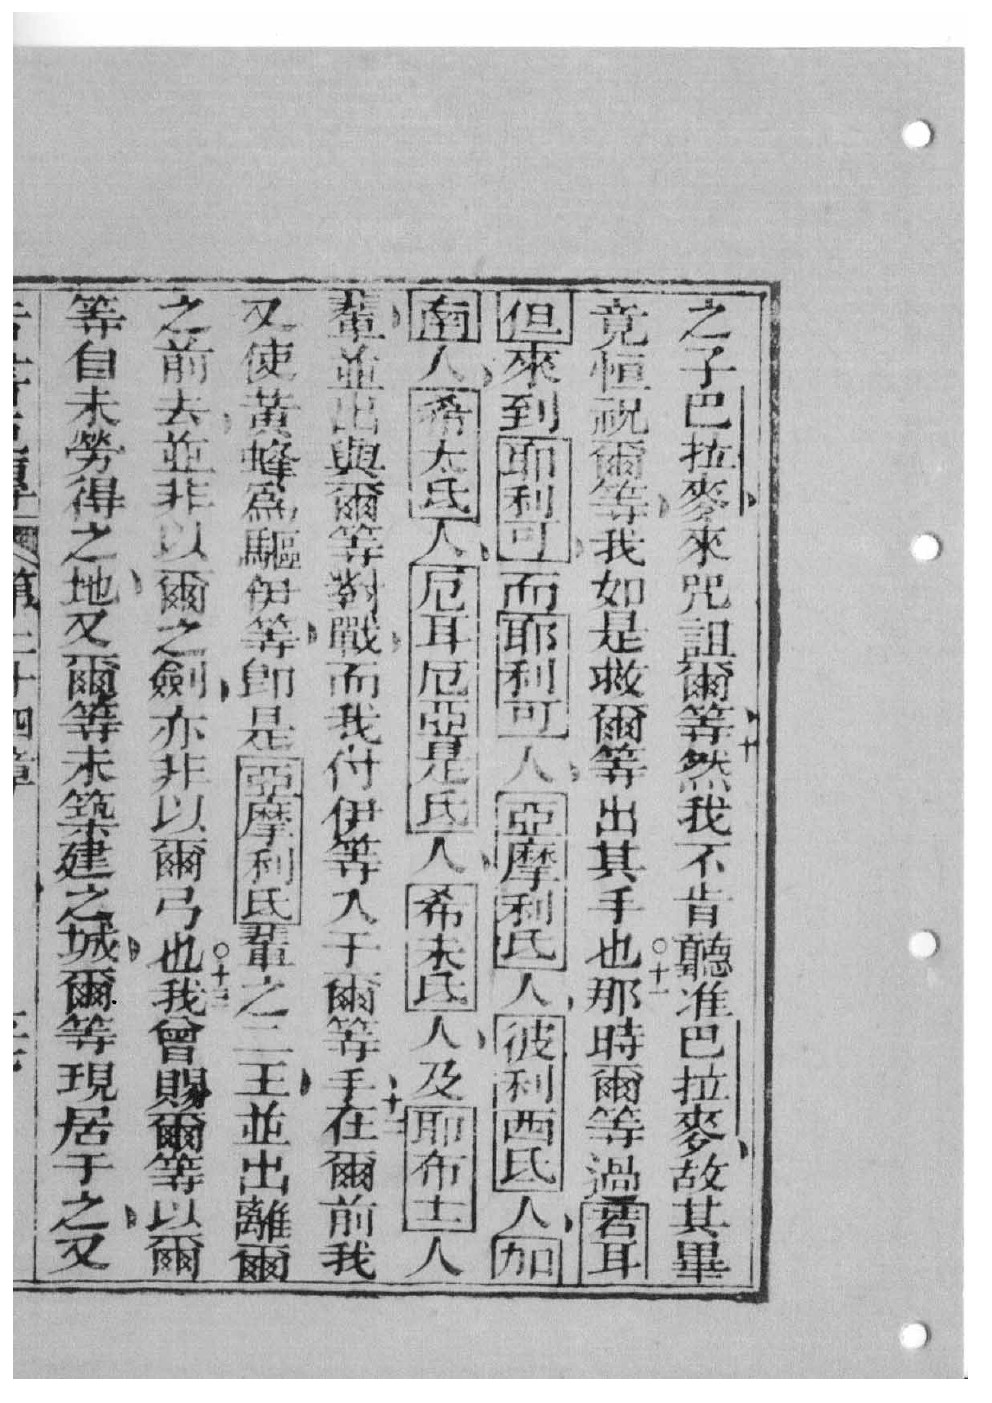 之子巴拉麥來咒詛爾等十然我不肯聽准巴拉麥故其畢
竟恒祝爾等我如是救爾等出其手也○十一那時爾等過若耳
但來到耶利可而耶利可人亞摩利氏人彼利西氏人加
南人希太氏人厄耳厄亞是氏人希未氏人及耶布士人
輩並出與爾等對戰而我付伊等入于爾等手十二在爾前我
又使黃蜂為驅伊等即是亞摩利氏輩之二王並出離爾
之前去並非以爾之劍亦非以爾弓也○十三我曾賜爾等以爾
等自未勞得之地又爾等未築建之城爾等現居于之又
第二十四章